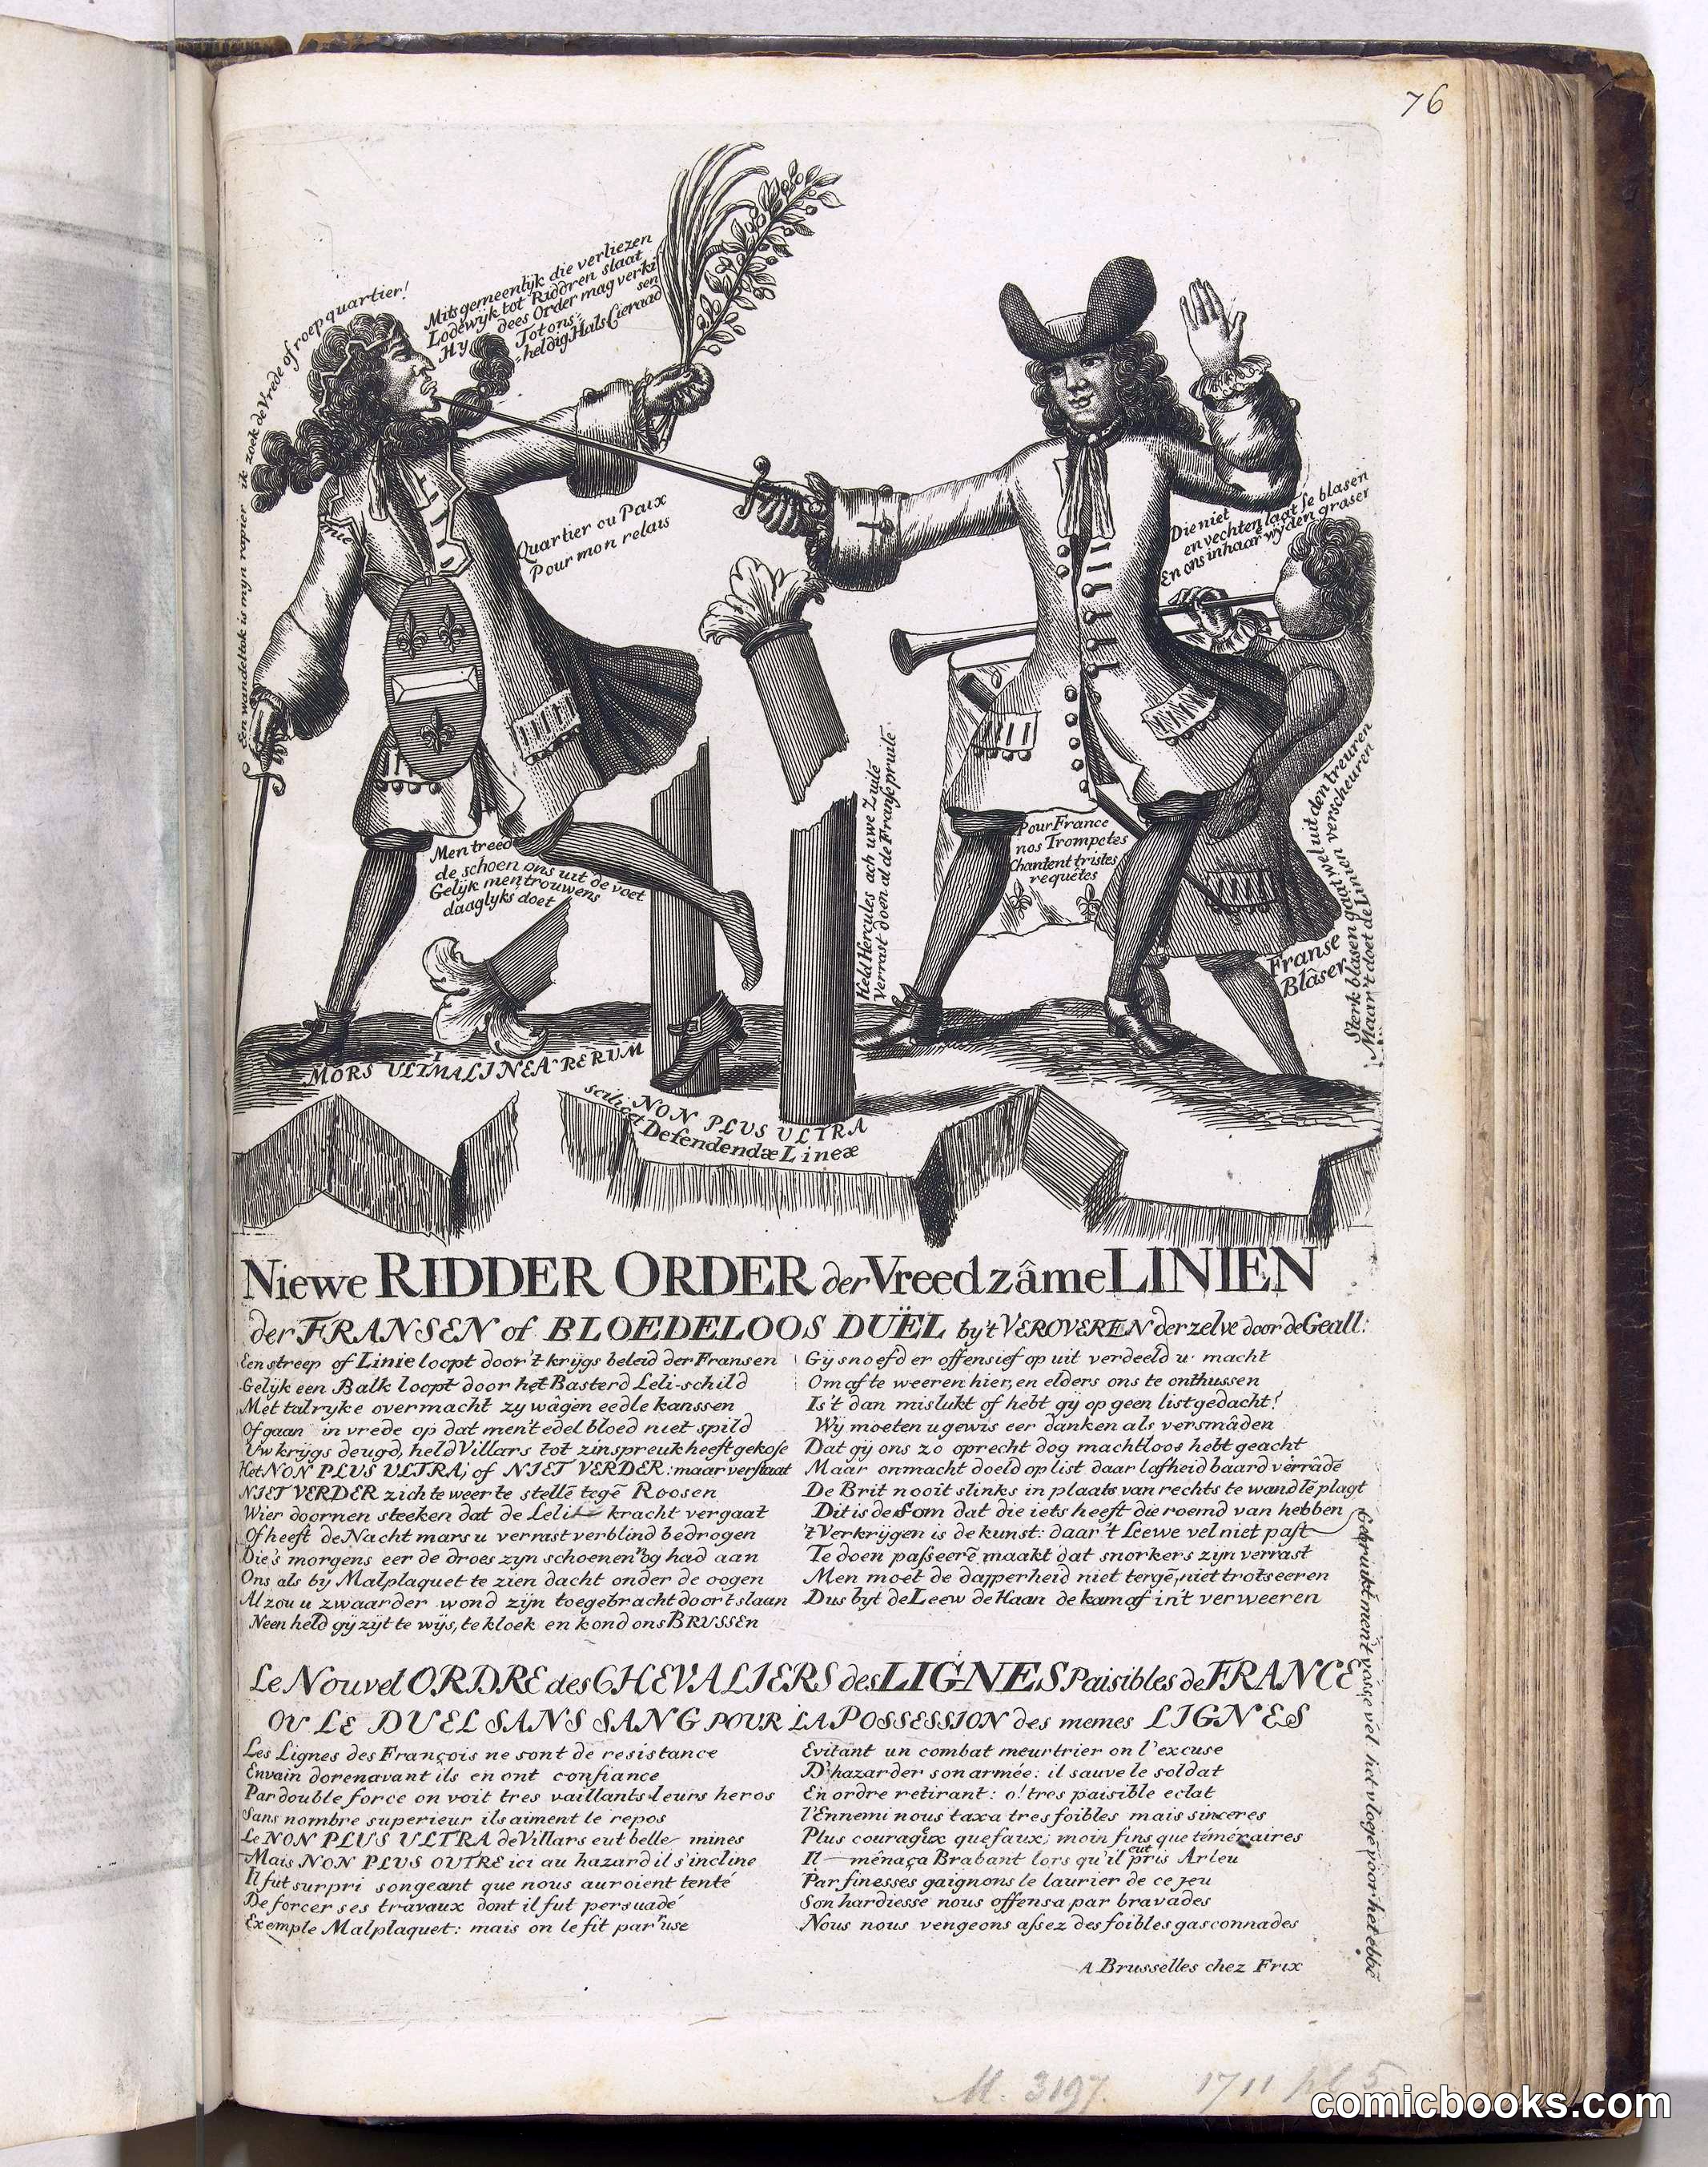 76
En wandelstok is myn rapier ik zoek de Vrede of roep quartier!
Mits gemeenlijk die verliezen
Lodewijk tot Riddren slaat
Hy dees Order mag verki
sen
Tot ons
heldig Hals Cieraad
Quartier ou Paix
Pour mon relais
Die niet
en vechten laat se blasen
En ons in haar wyden graser
Men treed
de schoen ons uit de voet
Gelijk men trouwens
daaglyks doet
Held Hercules ach uwe Zuilẽ
Verrast doen al de Franse pruilẽ
Pour France
nos Trompetes
Chantent tristes
requétes
Franse
Blâser
Sterk blasen gaat wel uit den treuren
Maar 't doet de Linien verscheuren
MORS ULTIMA LINEA RERUM
NON PLUS ULTRA
scilicet Defendendæ Lineæ
Niewe RIDDER ORDER der Vreedzâme LINIEN
der FRANSEN of BLOEDELOOS DUËL by't VEROVEREN derzelve door de Geall:
Een streep of Linie loopt door 't krijgs beleid der Fransen
Gelijk een Balk loopt door het Basterd Leli-schild
Met talryke overmacht zy wâgen eedle kanssen
Of gaan in vrede op dat men't edel bloed niet spild
Uw krijgs deugd, held Villars tot zinspreuk heeft gekose
Het NON PLUS ULTRA; of NIET VERDER: maar verstaat
NIET VERDER zich te weer te stellẽ tegẽ Roosen
Wier doornen steeken dat de Leli kracht vergaat
Of heeft de Nacht mars u verrast verblind bedrogen
Die's morgens eer de droes zyn schoenen nog had aan
Ons als bij Malplaquet te zien dacht onder de oogen
Al zou u zwaarder wond zijn toegebracht door t slaan
Neen held gij zijt te wijs, te kloek en kond ons BRUSSEn
Gij snoefd er offensief op uit verdeeld u macht
Om af te weeren hier, en elders ons te onthussen
Is't dan mislukt of hebt gij op geen list gedacht?
Wij moeten u gewis eer danken als versmâden
Dat gij ons zo oprecht dog machtloos hebt geacht
Maar onmacht doeld op list daar lafheid baard verrâdẽ
De Brit nooit slinks in plaats van rechts te wandlẽ plagt
Dit is de som dat die iets heeft die roemd van hebben
't Verkrijgen is de kunst: daar 't Leewe vel niet past
Te doen passeerẽ maakt dat snorkers zijn verrast
Men moet de dapperheid niet tergẽ, niet trotseeren
Dus byt de Leew de Haan de kam af in't verweeren
Gebruikt men't vosse vel het vloejẽ voor het ebbẽ
Le Nouvel ORDRE des CHEVALIERS des LIGNES Paisibles de FRANCE
OU LE DUEL SANS SANG POUR LA POSSESSION des memes LIGNES
Les Lignes des François ne sont de resistance
Envain dorenavant ils en ont confiance
Par double force on voit tres vaillants leurs heros
Sans nombre superieur ils aiment le repos
Le NON PLUS ULTRA de Villars eut belle mines
Mais NON PLUS OUTRE ici au hazard il s'incline
Il fut surpri songeant que nous auroient tenté
De forcer ses travaux dont il fut persuadé
Exemple Malplaquet: mais on le fit par ruse
Evitant un combat meurtrier on l'excuse
D'hazarder son armée: il sauve le soldat
En ordre retirant: o! tres paisible eclat
l'Ennemi nous taxa tres foibles mais sinceres
Plus courageux que faux; moin fins que téméraires
Il menaça Brabant lors qu'il eut pris Arleu
Par finesses gaignons le laurier de ce jeu
Son hardiesse nous offensa par bravades
Nous nous vengeons assez des foibles gasconnades
A Brusselles chez Frix
M. 3197. 1711 pl 5
comicbooks.com